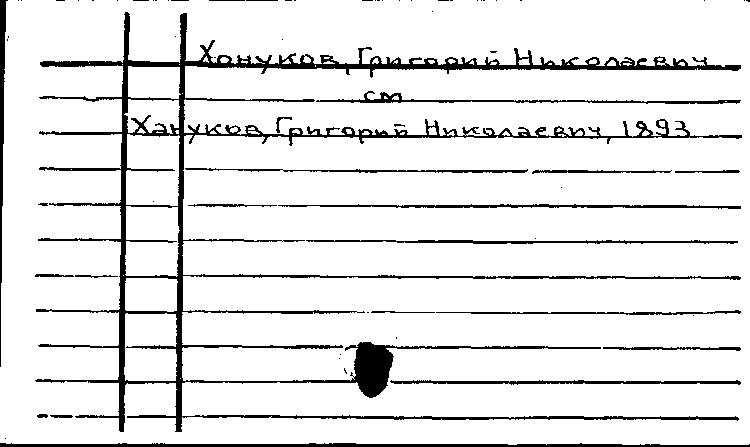 Хонуков, Григорий Николаевич
см
Хануков, Григорий Николаевич, 1893